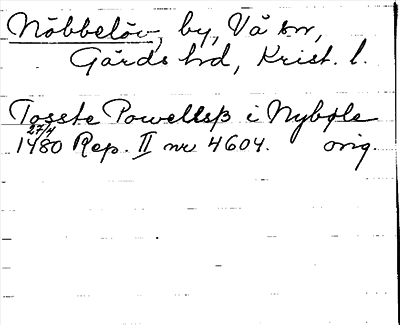 Nöbbelöv, by, Vä sn,
Gärds hd, Krist. l.
Tosste Powellsß i Nybøle
27/4
1480 Rep. II nr 4604. orig.